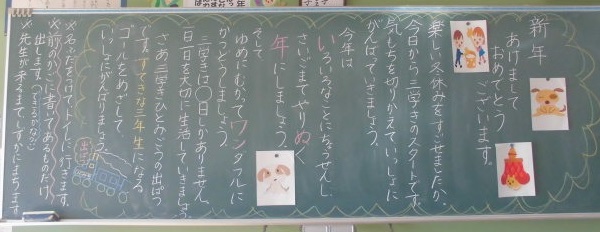 新年
あけまして
おめでとう
ございます。
楽しい冬休みをすごせましたか。
今日から三学きのスタートです。
気もちを切りかえていっしょに
がんばっていきましょう。
今年は
いろいろなことにちょうせんし、
さいごまでやりぬく
年にしましょう。
そして
ゆめにむかってワンダフルに
かつどうしましょう。
三学きは○日しかありません。
一日一日を大切に生活していきましょう。
さあ三学きひとみごうの出ぱつ
です。すてきな三年生になる
ゴールをめざして、
いっしょにがんばりましょう。
出ぱつ
※名ふだをつけて、トイレに行きます。
※前のかごに書いてあるものだけ
出します。
先生が来るまで、しずかにまちます。